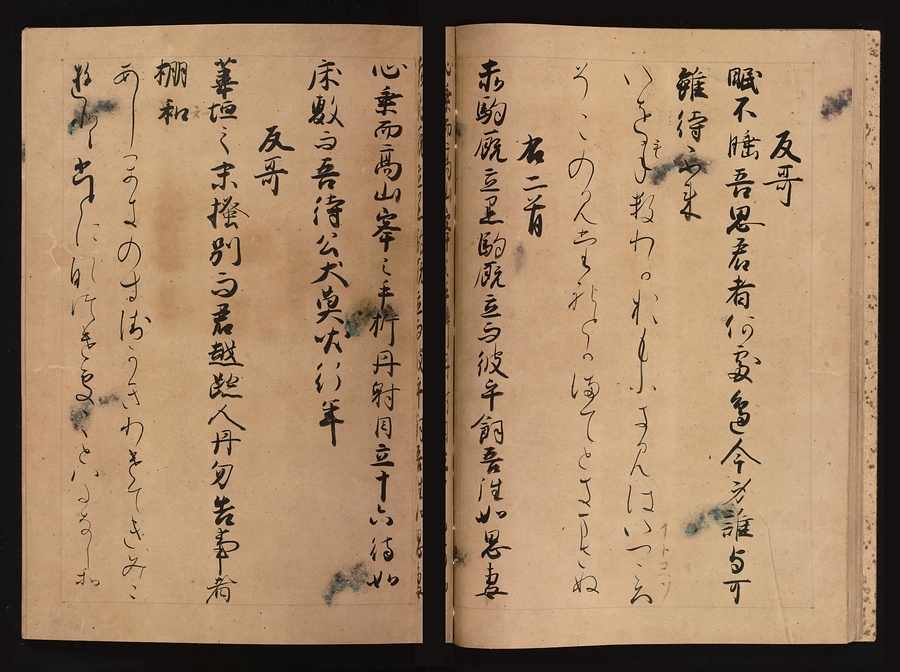 反哥
眠不睡吾思君者何處邊今身誰与可
雖待不来
いをもねすわかおもふきみはいつこ
このみたれ満てときまさぬ
右二首
赤駒厩立黒駒厩立而彼乎飼吾徃如思妻
心乗而高山峯之手折丹射目立十六待如
床敷而吾待公犬莫吠行年
反哥
葦垣之末掻別而君越跡人丹勿告事者
棚和
あしかきのすゑかきわきてきみこ
になつけそことはたなしれ